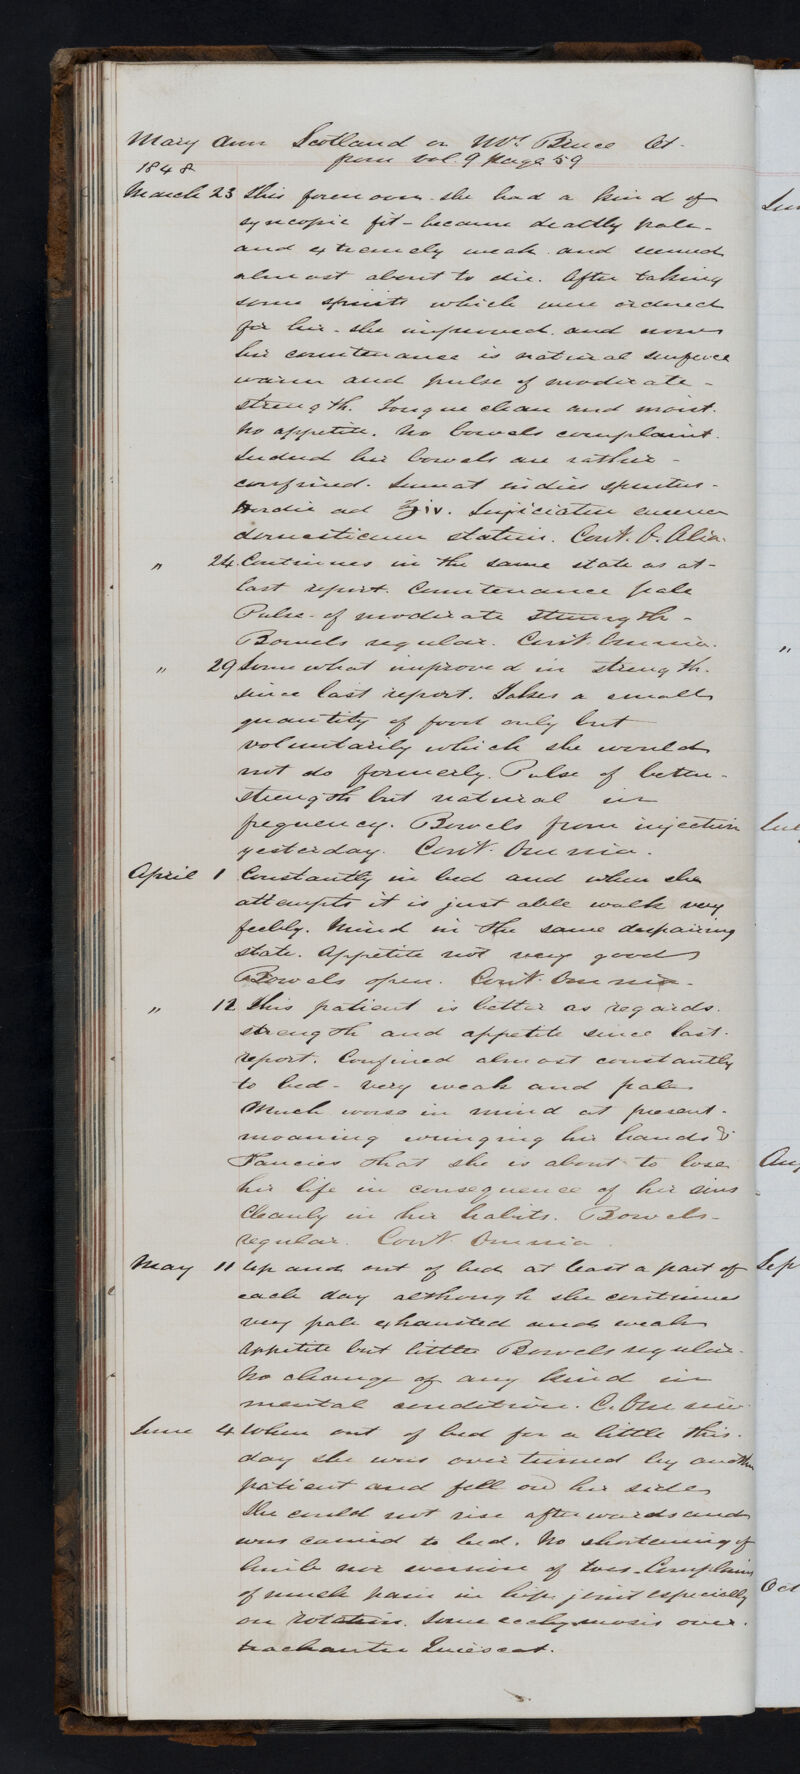 Mary Ann Scotland or Mrs Bruce Ct.
from Vol. 9 page 59
1848
March 23 This forenoon she had a kind of
syncopic fit - became deadly pale -
and extremely weak and seemed
almost about to die. After taking
some spirits which were ordered
for her - she improved and now
her countenance is natural surface
warm and pulse of moderate -
strength. Tongue clean and moist.
No appetite. No bowels complaint.
Indeed her bowels are rather -
confined. Sumat indies spiritus -
ad ℥iv. Injiciatur enema
domesticum statim. Cont. Alia.
" 24 Continues in the same state as at -
last report. Countenance pale
Pulse of moderate strength -
Bowels regular. Cont. Omnia.
" 29 Somewhat improved in strength.
since last report. Takes a small
quantity of food only but
voluntarily which she would
not do formerly. Pulse of better -
strength but natural in
frequency. Bowels from injection
yesterday. Cont. Omnia.
April 1 Constantly in bed and when she
attempts it is just able walk very
feebly. Mind in the same despairing
state. Appetite not very good
Bowels open. Cont. Omnia.
" 12 This patient is better as regards.
strength and appetite since last.
report. Confined almost constantly
to bed - very weak and pale
Much worse in mind at present -
moaning wringing her hands &
Fancies that she is about to lose
her life in consequence of her sins
Cleanly in her habits. Bowels -
regular. Cont. Omnia
May 11 Up and out of bed at least a part of
each day although she continues
very pale exhausted and weak
Appetite but little Bowels regular.
No change of any kind in
mental condition. C. Omnia
June 4 When out of bed for a little this.
day she was overturned by another
patient and fell on her side
She could not rise afterwards and
was carried to bed. No shortening of
limb nor eversion of toes. Complains
of much pain in hip joint especially
on rotation. Some ecchymosis over.
trochanter Quiescat.
Jun
"
Jul
Aug
Sep
Oct